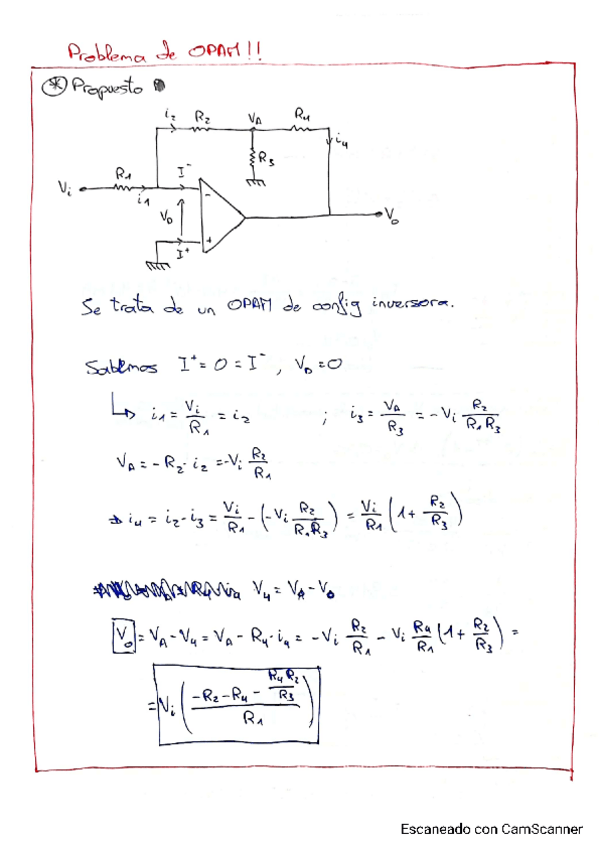 Problema de OPAM!!
* Propuesto
i2 R2 VA R4
i4
R3
R1 I-
Vi i1
VD
-
+
I+
Vo
Se trata de un OPAM de config inversora.
Sabemos I+ = 0 = I-, VD = 0
↳ i1 = Vi/R1 = i2 ; i3 = VA/R3 = -Vi R2/(R1R3)
VA = -R2·i2 = -Vi R2/R1
→ i4 = i2 - i3 = Vi/R1 - (-Vi R2/(R1R3)) = Vi/R1 (1 + R2/R3)
V4 = VA - Vo
Vo = VA - V4 = VA - R4·i4 = -Vi R2/R1 - Vi R4/R1 (1 + R2/R3) =
= Vi ((-R2 - R4 - R4R2/R3)/R1)
Escaneado con CamScanner